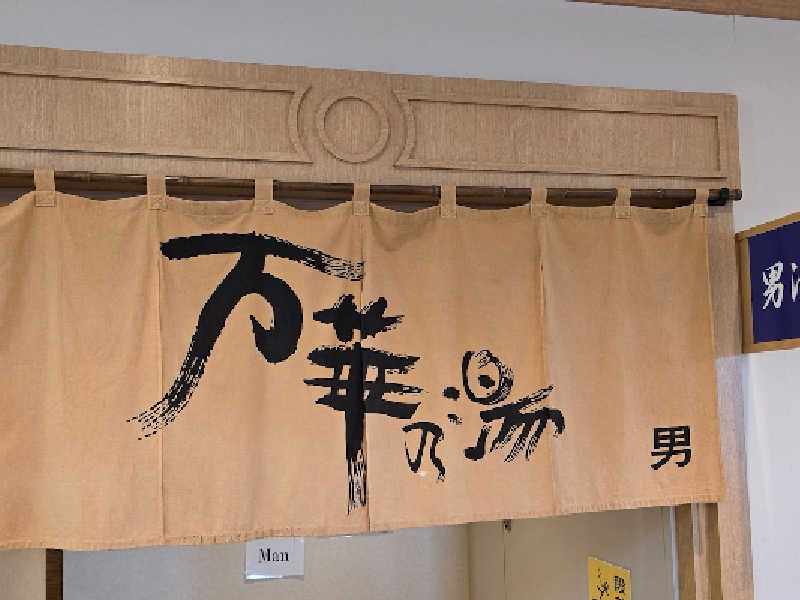 万華乃湯
男
男
Man